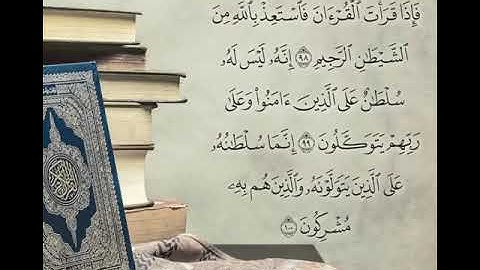 فَإِذَا قَرَأْتَ ٱلْقُرْءَانَ فَٱسْتَعِذْ بِٱللَّهِ مِنَ
ٱلشَّيْطَٰنِ ٱلرَّجِيمِ ٩٨ إِنَّهُۥ لَيْسَ لَهُۥ
سُلْطَٰنٌ عَلَى ٱلَّذِينَ ءَامَنُوا۟ وَعَلَىٰ
رَبِّهِمْ يَتَوَكَّلُونَ ٩٩ إِنَّمَا سُلْطَٰنُهُۥ
عَلَى ٱلَّذِينَ يَتَوَلَّوْنَهُۥ وَٱلَّذِينَ هُم بِهِۦ
مُشْرِكُونَ ١٠٠